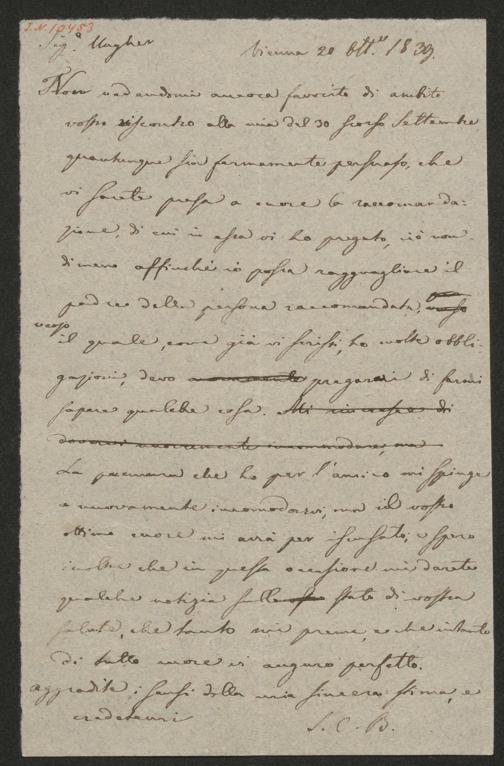 I.N. 10453
Sig.ª Ungher Vienna 20 Ott.e 1839.
Non vedendomi ancora favorito di ambito
vostro riscontro alla mia del 30 scorso Settembre
quantunque sia fermamente persuaso, che
vi sarete presa a cuore la raccomanda:
zione, di cui in essa vi ho pregato, ciò non
dimeno affinchè io possa ragguagliare il
padre della persona raccomandata, verso
verso
il quale, come già vi scrissi, ho molte obbli-
gazioni, devo nuovamente pregarvi di farmi
sapere qualche cosa. Mi rincresce di
dovervi nuovamente incommodare, ma
La premura che ho per l'amico mi spinge
a nuovamente incomodarvi, ma il vostro
ottimo cuore mi avrà per iscusato; e spero
inoltre che in questa occasione mi darete
qualche notizia sullo stato di vostra
salute, che tanto mi preme, e che intanto
di tutto cuore vi auguro perfetto.
aggradite i sensi della mia sincera stima, e
credetemi S. C. B.